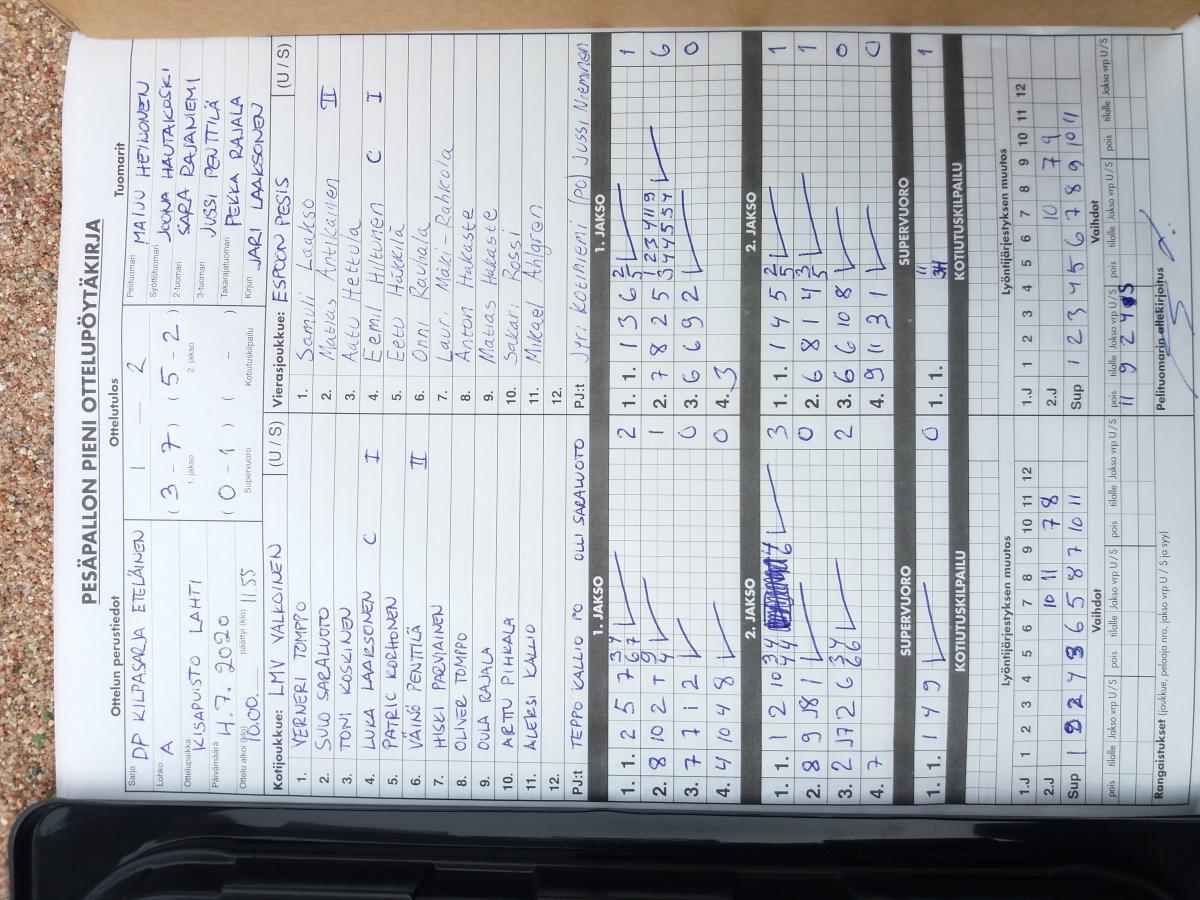 PESÄPALLON PIENI OTTELUPÖYTÄKIRJA
Ottelun perustiedot
Sarja DP KILPASARJA ETELÄINEN
Lohko A
Ottelupaikka KISAPUISTO LAHTI
Päivämäärä 4.7.2020
Ottelu alkoi (klo) 10.00 päättyi (klo) 11.55
Ottelutulos
1 – 2
( 3 - 7 ) ( 5 - 2 )
1. jakso 2. jakso
( 0 - 1 ) ( - )
Supervuoro Kotiutuskilpailu
Tuomarit
Pelituomari MAIJU HEINONEN
Syöttötuomari JOONA HAUTAKOSKI
2-tuomari SARA RAJANIEMI
3-tuomari JUSSI PENTTILÄ
Takarajatuomari PEKKA RAJALA
Kirjuri JARI LAAKSONEN
Kotijoukkue: LMV VALKOINEN (U / S)
1. VERNERI TOMPPO
2. SULO SARALUOTO
3. TONI KOSKINEN
4. LUKA LAAKSONEN C I
5. PATRIC KORHONEN
6. VÄINÖ PENTTILÄ II
7. HISKI PARVIAINEN
8. OLIVER TOMPPO
9. OULA RAJALA
10. ARTTU PIHKALA
11. ALEKSI KALLIO
12.
PJ:t TEPPO KALLIO PO OLLI SARALUOTO
Vierasjoukkue: ESPOON PESIS (U / S)
1. Samuli Laakso
2. Matias Antikainen II
3. Aatu Hettula
4. Eemil Hiltunen C I
5. Eetu Häkkilä
6. Onni Raunala
7. Lauri Mäki-Rahkola
8. Anton Hakaste
9. Matias Hakaste
10. Sakari Rossi
11. Mikael Ahlgren
12.
PJ:t Jyri Kotiniemi (PO) Jussi Nieminen
1. JAKSO
1. 1. 2 5 7 3/6 4/7 2
2. 8 10 2 T 9/4 1
3. 7 7 i 2 0
4. 4 10 4 8 0
1. JAKSO
1. 1. 1 3 6 2/5 1
2. 7 8 2 5 1/3 2/4 3/4 4/5 11/5 9/4 6
3. 6 6 9 2 0
4. 3
2. JAKSO
1. 1. 1 2 10 3/4 4/4 4/6 3
2. 8 9 18 1 0
3. 2 17 2 6 3/6 4/6 2
4. 7
2. JAKSO
1. 1. 1 4 5 2/5 1
2. 6 8 1 4 3/5 1
3. 6 6 10 8 0
4. 9 11 3 1 0
SUPERVUORO
1. 1. 1 4 9 0
SUPERVUORO
1. 1. 11/3H 1
KOTIUTUSKILPAILU
KOTIUTUSKILPAILU
Lyöntijärjestyksen muutos
1 2 3 4 5 6 7 8 9 10 11 12
1.J
2.J 10 11 7 8
Sup 1 2 4 3 6 5 8 7 10 11
Lyöntijärjestyksen muutos
1 2 3 4 5 6 7 8 9 10 11 12
1.J
2.J 10 7 9
Sup 1 2 3 4 5 6 7 8 9 10 11
Vaihdot
pois tilalle Jakso vrp U / S pois tilalle Jakso vrp U / S pois tilalle Jakso vrp U / S
Vaihdot
pois tilalle Jakso vrp U / S pois tilalle Jakso vrp U / S pois tilalle Jakso vrp U / S
11 9 2 4 S
Rangaistukset (joukkue, pelaaja nro, jakso vrp U / S ja syy)
Pelituomarin allekirjoitus